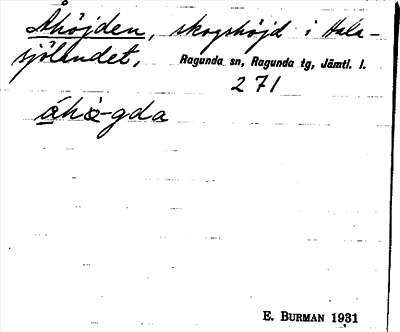 Åhöjden, skogshöjd i Hala-
sjölandet, Ragunda sn, Ragunda tg, Jämtl. l.
271
åhö̀-gda
E. BURMAN 1931